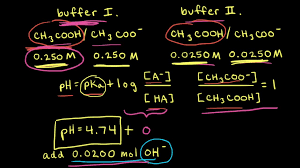 buffer I.
buffer II.
CH₃COOH / CH₃COO⁻
CH₃COOH / CH₃COO⁻
0.250 M 0.250 M
0.0250 M 0.0250 M
pH = pKa + log [A⁻] / [HA]
[CH₃COO⁻] / [CH₃COOH] = 1
pH = 4.74 + 0
add 0.0200 mol OH⁻